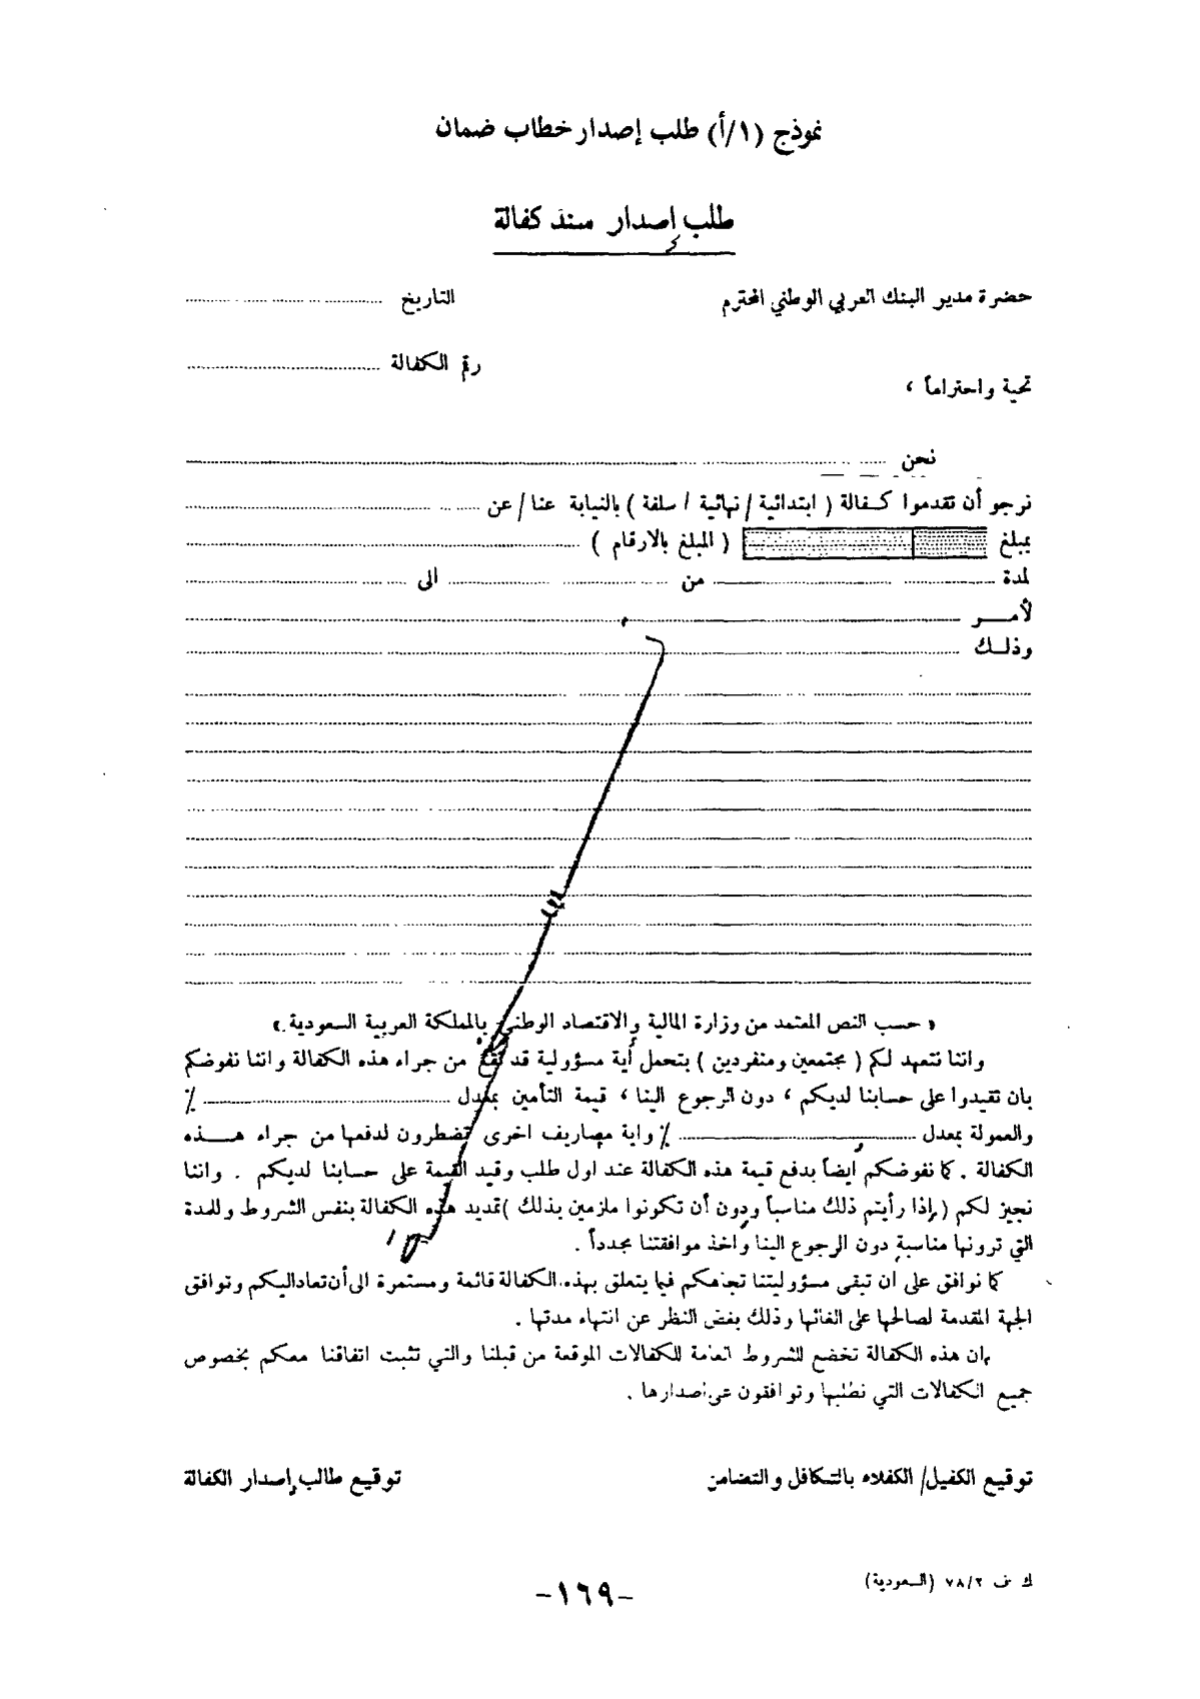 نموذج (١/أ) طلب إصدار خطاب ضمان
طلب إصدار سند كفالة
حضرة مدير البنك العربي الوطني المحترم
التاريخ
رقم الكفالة
تحية واحتراماً ،
نحن
نرجو أن تقدموا كفالة ( ابتدائية / نهائية / سلفة ) بالنيابة عنا / عن
بمبلغ ( المبلغ بالارقام )
لمدة من الى
لأمر
وذلك
« حسب النص المعتمد من وزارة المالية والاقتصاد الوطني بالمملكة العربية السعودية »
واننا نتعهد لكم ( مجتمعين ومنفردين ) بتحمل أية مسؤولية قد تقع من جراء هذه الكفالة واننا نفوضكم
بان تقيدوا على حسابنا لديكم ، دون الرجوع الينا ، قيمة التأمين بمعدل ٪
والعمولة بمعدل ٪ واية مصاريف اخرى تضطرون لدفعها من جراء هذه
الكفالة . كما نفوضكم أيضاً بدفع قيمة هذه الكفالة عند اول طلب وقيد القيمة على حسابنا لديكم . واننا
نجيز لكم ( إذا رأيتم ذلك مناسباً ودون أن تكونوا ملزمين بذلك ) تمديد هذه الكفالة بنفس الشروط وللمدة
التي ترونها مناسبة دون الرجوع الينا وأخذ موافقتنا مجدداً .
كما نوافق على ان تبقى مسؤوليتنا تجاهكم فيما يتعلق بهذه الكفالة قائمة ومستمرة الى أن تعاد اليكم وتوافق
الجهة المقدمة لصالحها على الغائها وذلك بغض النظر عن انتهاء مدتها .
إن هذه الكفالة تخضع للشروط العامة للكفالات الموقعة من قبلنا والتي تثبت اتفاقنا معكم بخصوص
جميع الكفالات التي نطلبها وتوافقون على إصدارها .
توقيع الكفيل / الكفلاء بالتكافل والتضامن
توقيع طالب إصدار الكفالة
ك ف ٧٨/٢ (السعودية)
-١٦٩-